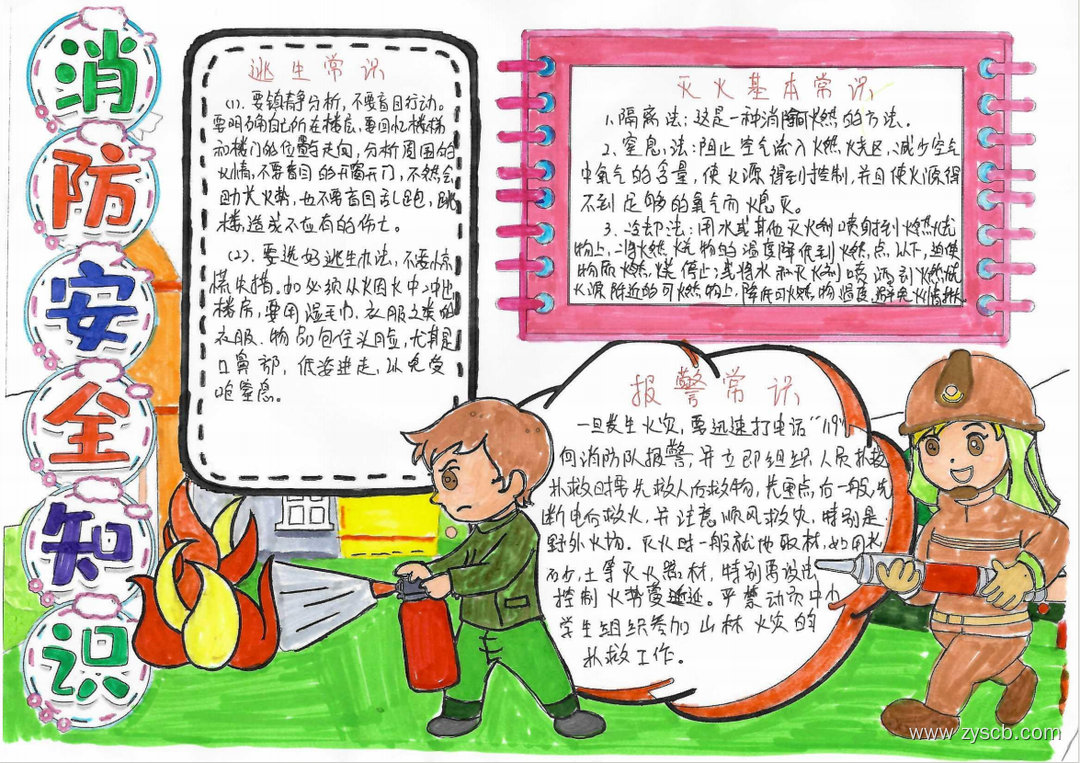 消防安全知识
逃生常识
(1). 要镇静分析，不要盲目行动。
要明确自己所在楼层，要回忆楼梯
和楼门的位置与走向，分析周围的
火情，不要盲目的开窗开门，不然会
助长火势，也不要盲目乱跑，跳
楼造成不应有的伤亡。
(2). 要选好逃生办法，不要惊
慌失措。如必须从烟火中冲出
楼房，要用湿毛巾、衣服之类的
衣服、物品包住头脸，尤其是
口鼻部，低姿进走，以免受
呛窒息。
灭火基本常识
1. 隔离法：这是一种消除可燃的方法。
2. 窒息法：阻止空气流入燃烧区，减少空气
中氧气的含量，使火源得到控制，并且使火源得
不到足够的氧气而熄灭。
3. 冷却法：用水或其他灭火剂喷射到燃烧
物上，将燃烧物的温度降低到燃点以下，迫使
物质燃烧停止；或将水和灭火剂喷洒到燃烧
火源附近的可燃物上，降低可燃物温度，避免火情扩
报警常识
一旦发生火灾，要迅速打电话“119”
向消防队报警，并立即组织人员扑救
扑救时先救人后救物，先重点，后一般，先
断电后救火，并注意顺风救灾，特别是
野外火场。灭火时一般就地取材，如用水
砂，土等灭火器材，特别要设法
控制火势蔓延。严禁动员中小
学生组织参加山林火灾的
扑救工作。
www.zyscb.com